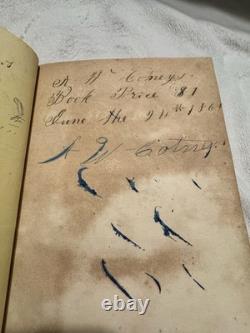 A W Coneys
Book Price $1
June the 24th 186
A W